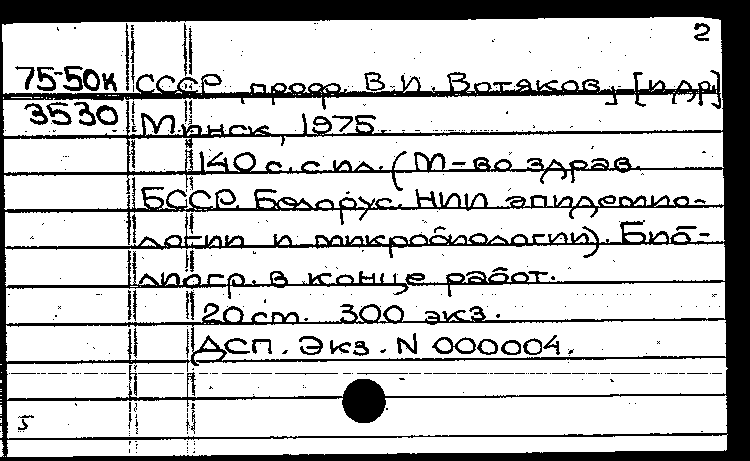 2
75-50к СССР, проф. В.И. Вотяков, [и др]
3530 Минск, 1975.
140 с. с ил. (М-во здрав.
БССР. Белорус. НИИ эпидемио-
логии и микробиологии). Биб-
лиогр. в конце работ.
20 ст. 300 экз.
ДСП. Экз. N 000004.
5